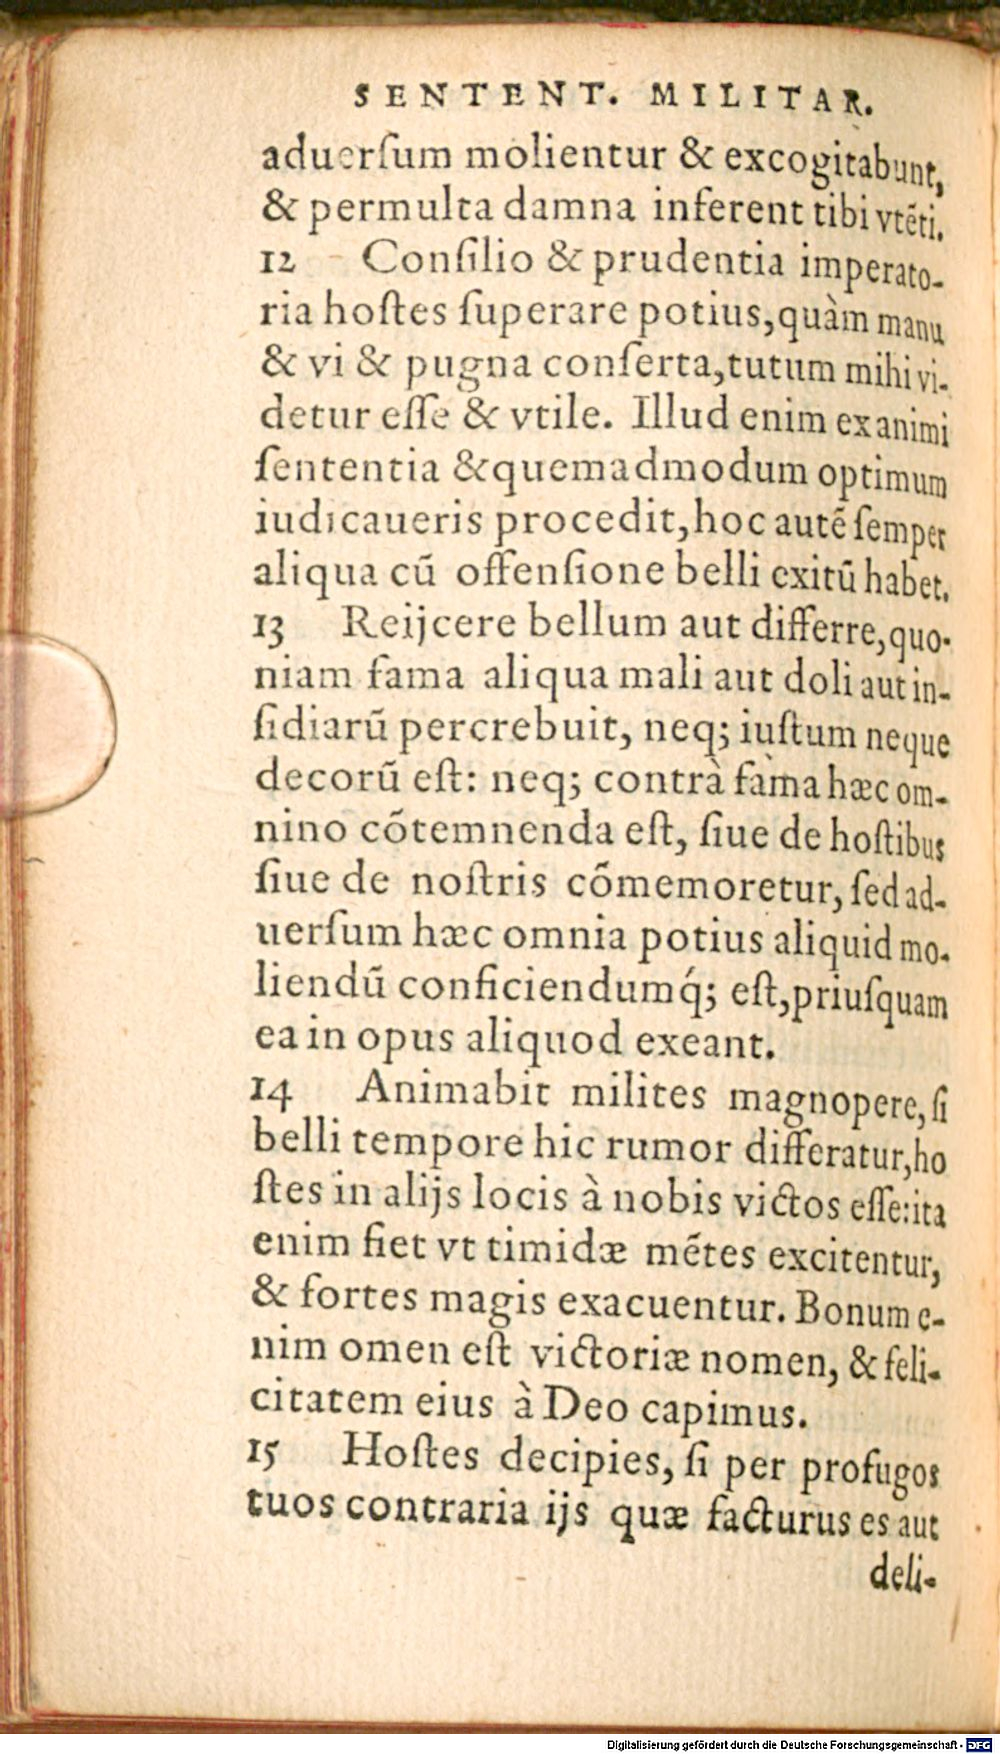 SENTENT. MILITAR.
aduerſum molientur & excogitabunt,
& permulta damna inferent tibi vtẽti.
12 Conſilio & prudentia imperato-
ria hoſtes ſuperare potius,quàm manu
& vi & pugna conſerta,tutum mihi vi-
detur eſſe & vtile. Illud enim ex animi
ſententia &quemadmodum optimum
iudicaueris procedit,hoc autẽ ſemper
aliqua cũ offenſione belli exitũ habet.
13 Reijcere bellum aut differre,quo-
niam fama aliqua mali aut doli aut in-
ſidiarũ percrebuit, neq; iuſtum neque
decorũ eſt: neq; contrà fama hæc om-
nino cõtemnenda eſt, ſiue de hoſtibus
ſiue de noſtris cõmemoretur, ſed ad-
uerſum hæc omnia potius aliquid mo-
liendũ conficiendumq́; eſt,priuſquam
ea in opus aliquod exeant.
14 Animabit milites magnopere, ſi
belli tempore hic rumor differatur,ho
ſtes in alijs locis à nobis victos eſſe:ita
enim fiet vt timidæ mẽtes excitentur,
& fortes magis exacuentur. Bonum e-
nim omen eſt victoriæ nomen, & feli-
citatem eius à Deo capimus.
15 Hoſtes decipies, ſi per profugos
tuos contraria ijs quæ facturus es aut
deli-
Digitalisierung gefördert durch die Deutsche Forschungsgemeinschaft - DFG